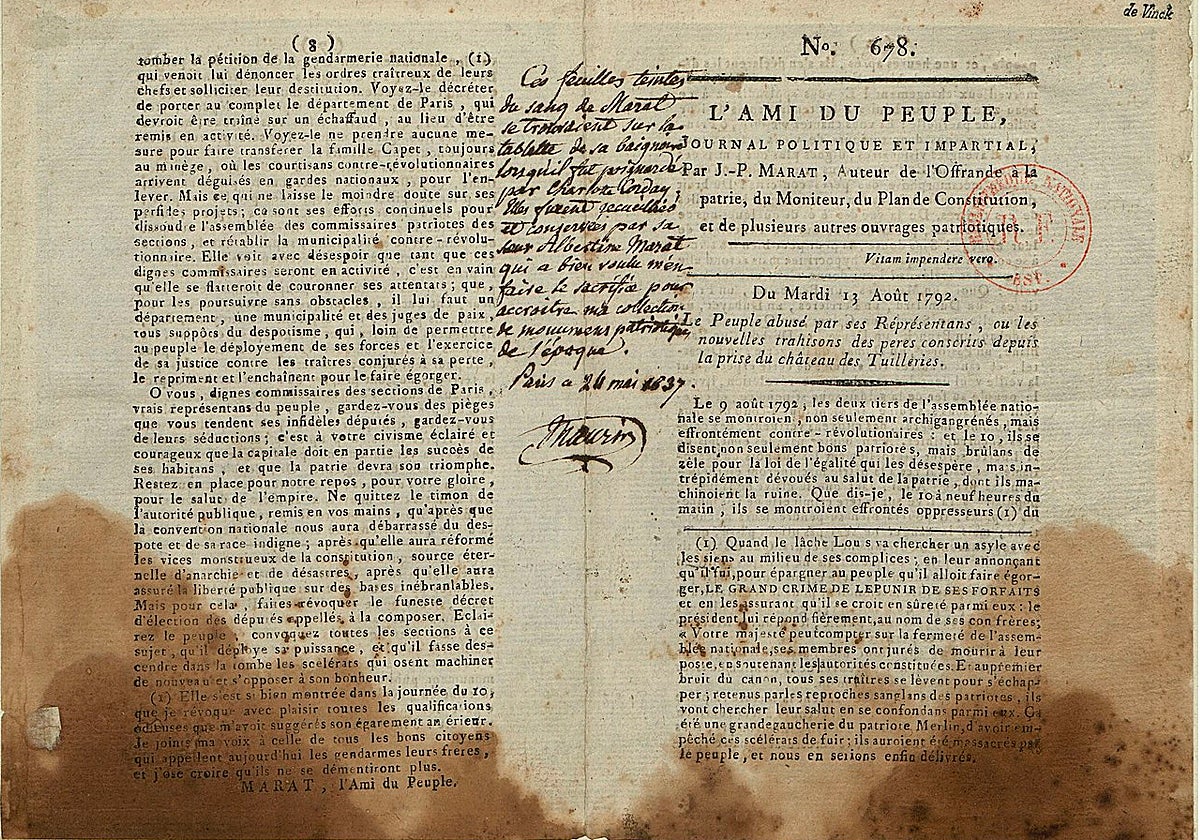 de Vinck
( 8 )
tomber la pétition de la gendarmerie nationale, (1)
qui venoit lui dénoncer les ordres traîtreux de leurs
chefs et solliciter leur destitution. Voyez-le décréter
de porter au complet le département de Paris, qui
devroit être traîné sur un échaffaud, au lieu d'être
remis en activité. Voyez-le ne prendre aucune me-
sure pour faire transférer la famille Capet, toujours
au manège, où les courtisans contre-révolutionnaires
arrivent déguisés en gardes nationaux, pour l'en-
lever. Mais ce qui ne laisse le moindre doute sur ses
perfides projets; ce sont ses efforts continuels pour
dissoudre l'assemblée des commissaires patriotes des
sections, et rétablir la municipalité contre-révolu-
tionnaire. Elle voit avec désespoir que tant que ces
dignes commissaires seront en activité, c'est en vain
qu'elle se flatteroit de couronner ses attentats; que,
pour les poursuivre sans obstacles, il lui faut un
département, une municipalité et des juges de paix,
tous suppôts du despotisme, qui, loin de permettre
au peuple le déployement de ses forces et l'exercice
de sa justice contre les traîtres conjurés à sa perte,
le repriment et l'enchaînent pour le faire égorger.
O vous, dignes commissaires des sections de Paris,
vrais représentans du peuple, gardez-vous des pièges
que vous tendent ses infidèles députés, gardez-vous
de leurs séductions; c'est à votre civisme éclairé et
courageux que la capitale doit en partie les succès de
ses habitans, et que la patrie devra son triomphe.
Restez en place pour notre repos, pour votre gloire,
pour le salut de l'empire. Ne quittez le timon de
l'autorité publique, remis en vos mains, qu'après que
la convention nationale nous aura débarrassé du des-
pote et de sa race indigne; après qu'elle aura réformé
les vices monstrueux de la constitution, source éter-
nelle d'anarchie et de désastres, après qu'elle aura
assuré la liberté publique sur des bases inébranlables.
Mais pour cela, faites révoquer le funeste décret
d'élection des députés appellés à la composer. Eclai-
rez le peuple, convoquez toutes les sections à ce
sujet, qu'il déploye sa puissance, et qu'il fasse des-
cendre dans la tombe les scélérats qui osent machiner
de nouveau et s'opposer à son bonheur.
(1) Elle s'est si bien montrée dans la journée du 10,
que je révoque avec plaisir toutes les qualifications
odieuses que m'avoit suggérés son égarement antérieur.
Je joints ma voix à celle de tous les bons citoyens
qui appellent aujourd'hui les gendarmes leurs freres,
et j'ose croire qu'ils ne se démentiront plus.
MARAT, l'Ami du Peuple.
Ces feuilles teintes
du sang de Marat
se trouvaient sur la
tablette de sa baignoire
lorsqu'il fut poignardé
par Charlotte Corday;
Elles furent recueillies
et conservées par sa
sœur Albertine Marat
qui a bien voulu m'en
faire le sacrifice pour
accroitre ma collection
de monumens patriotiques
de l'époque.
Paris ce 24 mai 1837.
Maurin
No. 678.
L'AMI DU PEUPLE,
JOURNAL POLITIQUE ET IMPARTIAL,
Par J.-P. MARAT, Auteur de l'Offrande à la
patrie, du Moniteur, du Plan de Constitution,
et de plusieurs autres ouvrages patriotiques.
Vitam impendere vero.
BIBLIOTHEQUE NATIONALE
R F
EST.
Du Mardi 13 Août 1792.
Le Peuple abusé par ses Réprésentans, ou les
nouvelles trahisons des peres conscrits depuis
la prise du château des Tuilleries.
Le 9 août 1792, les deux tiers de l'assemblée natio-
nale se montroient, non seulement archigangrénés, mais
effrontément contre-révolutionaires: et le 10, ils se
disent, non seulement bons patriotes, mais brûlans de
zèle pour la loi de l'égalité qui les désespère, mais in-
trépidément dévoués au salut de la patrie, dont ils ma-
chinoient la ruine. Que dis-je, le 10 à neuf heures du
matin, ils se montroient effrontés oppresseurs (1) du
(1) Quand le lâche Louis va chercher un asyle avec
les siens au milieu de ses complices; en leur annonçant
qu'il fui, pour épargner au peuple qu'il alloit faire égor-
ger, LE GRAND CRIME DE LE PUNIR DE SES FORFAITS
et en les assurant qu'il se croit en sûreté parmi eux: le
président lui répond fièrement, au nom de ses confrères;
« Votre majesté peut compter sur la fermeté de l'assem-
blée nationale, ses membres ont jurés de mourir à leur
poste, en soutenant les autorités constituées. Et au premier
bruit du canon, tous ses traîtres se lèvent pour s'échap-
per; retenus par les reproches sanglans des patriotes, ils
vont chercher leur salut en se confondans parmi eux. Ça
été une grande gaucherie du patriote Merlin, d'avoir em-
pêché ces scélérats de fuir; ils auroient été massacrés par
le peuple, et nous en serions enfin délivrés.